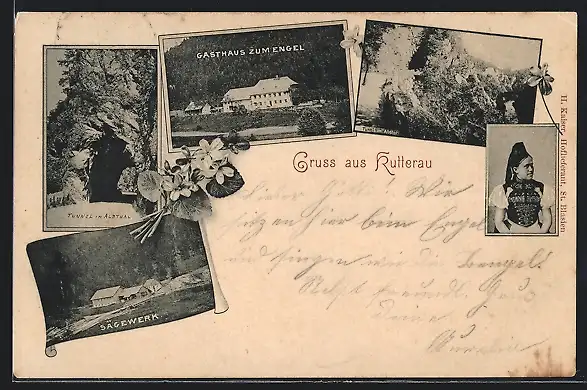 GASTHAUS ZUM ENGEL
TUNNEL IM ALBTHAL
Gruss aus Kutterau
H. Kaiser, Hoflieferant, St. Blasien
Lieber Gött! Wir
sitzen hier beim Engel
und singen wie die Bengel!
Nebst freundl. Gruß
Deine
SÄGEWERK